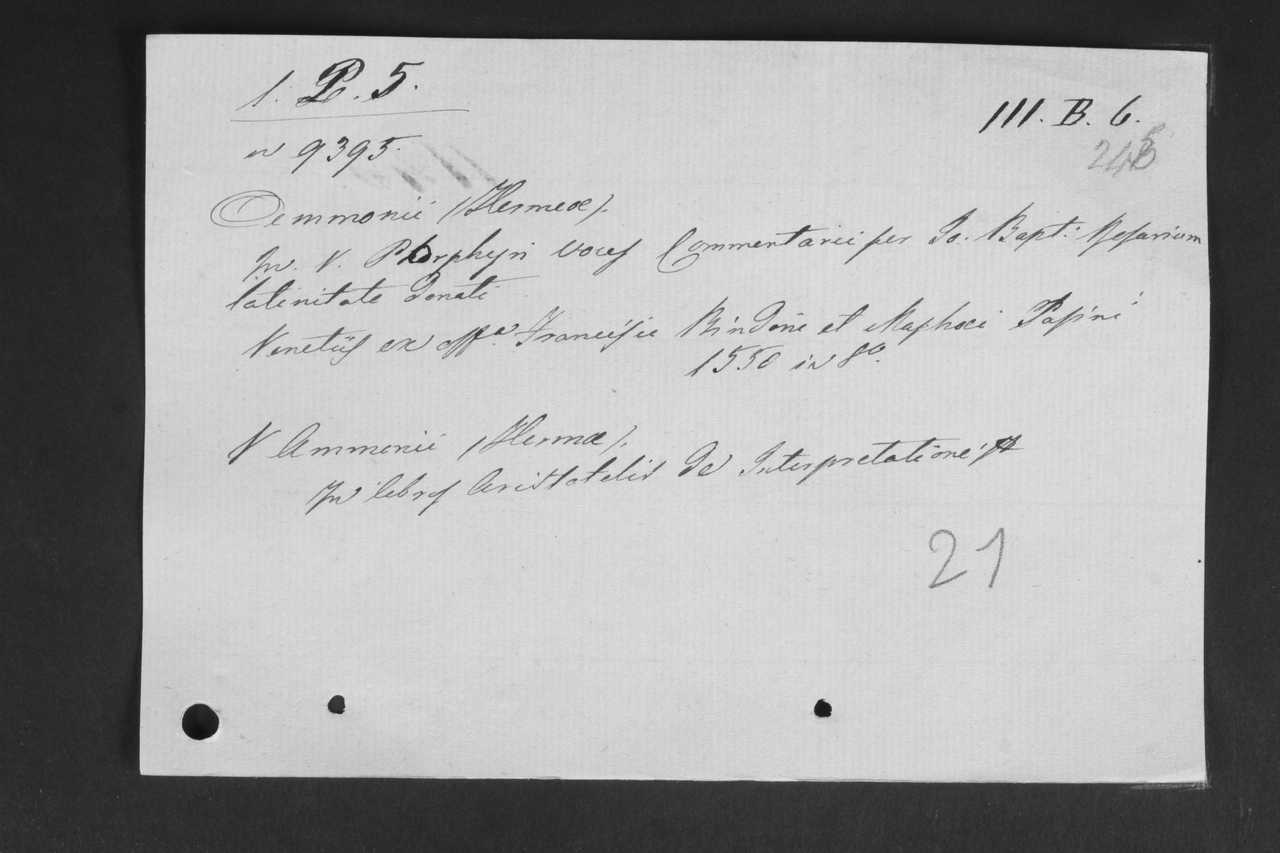 1. P. 5.
III. B. 6.
n 9395.
24
Aemmonii (Hermeæ).
In. V. Porphyri voces Commentarii per Jo. Bapt. Resarium
latinitate donati
Venetiis ex offa. Francisci Bindoni et Maphoei Pasini
1550 in 8o.
V Ammonii (Hermæ).
In libros Aristotelis De Interpretatione
21